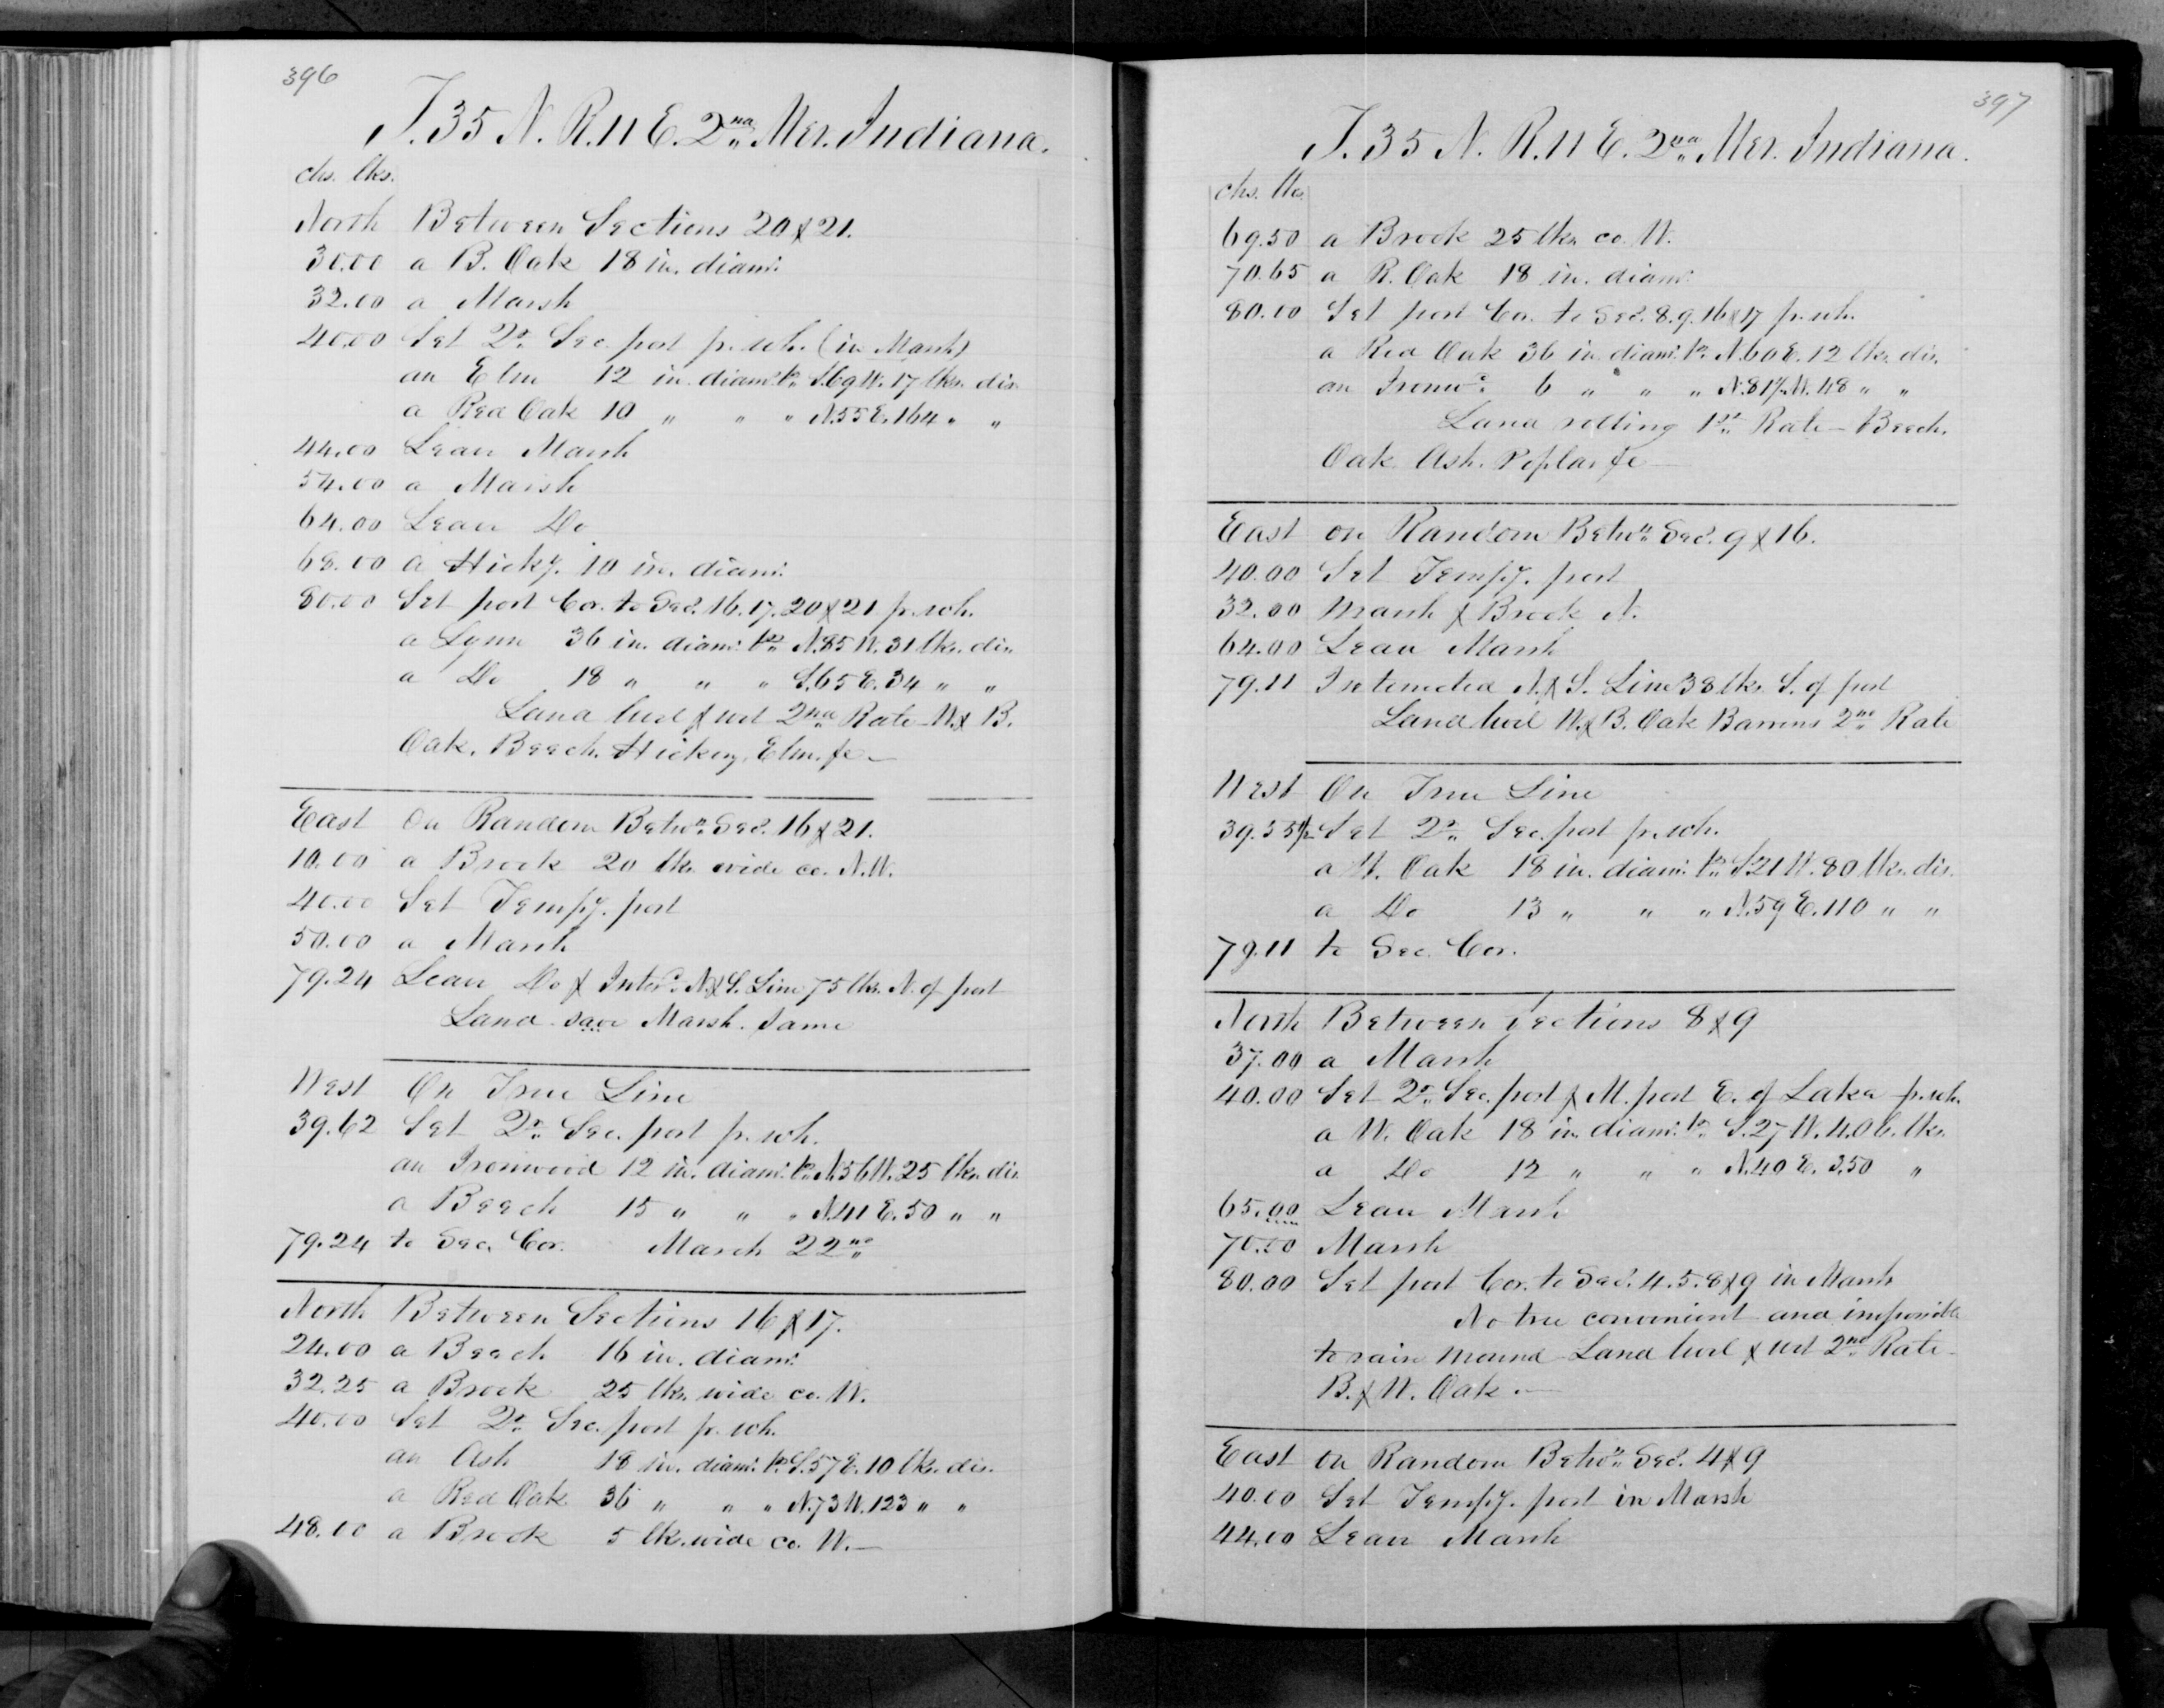 396
T. 35 N. R. 11 E. 2nd Mer. Indiana.
chs. lks.
North Between Sections 20 & 21.
30.00 a B. Oak 18 in. diamr.
32.00 a Marsh
40.00 Set Qr. Sec. post p. sch. (in Marsh)
an Elm 12 in. diamr. br. S.69 W. 17 lks. dis.
a Red Oak 10 " " " N.55 E. 164 " "
44.00 Leave Marsh
54.00 a Marsh
64.00 Leave Do
68.00 a Hicky. 10 in. diamr.
80.00 Set post Cor. to Secs. 16. 17. 20 & 21 p. sch.
a Lynn 36 in. diamr. br. N.85 W. 31 lks. dis.
a Do 18 " " " S.65 E. 34 " "
Land level & wet 2nd Rate - W. & B.
Oak. Beech. Hickory. Elm. &c -
East On Random Betwn. Secs. 16 & 21.
10.00 a Brook 20 lks. wide co. N.W.
40.00 Set Tempy. post
50.00 a Marsh
79.24 Leave Do & Intersd. N. & S. Line 75 lks. N. of post
Land save Marsh. Same
West On True Line
39.62 Set Qr. Sec. post p. sch.
an Ironwood 12 in. diamr. br. N.56 W. 25 lks. dis.
a Beech 15 " " " N.41 E. 50 " "
79.24 to Sec. Cor. March 22nd
North Between Sections 16 & 17.
24.00 a Beech 16 in. diamr.
32.25 a Brook 25 lks. wide co. W.
40.00 Set Qr. Sec. post p. sch.
an Ash 18 in. diamr. br. S.57 E. 10 lks. dis.
a Red Oak 36 " " " N.73 W. 123 " "
48.00 a Brook 5 lks. wide co. W. -
397
T. 35 N. R. 11 E. 2nd Mer. Indiana.
chs. lks.
69.50 a Brook 25 lks. co. W.
70.65 a R. Oak 18 in. diamr.
80.00 Set post Cor. to Secs. 8. 9. 16 & 17 p. sch.
a Red Oak 36 in. diamr. br. N.60 E. 12 lks. dis.
an Ironwd. 6 " " " N.81½ W. 48 " "
Land rolling 1st Rate - Beech.
Oak. Ash. Poplar &c -
East on Random Betwn. Secs. 9 & 16.
40.00 Set Tempy. post
32.00 Marsh & Brook N.
64.00 Leave Marsh
79.11 Intersected N. & S. Line 38 lks. S. of post
Land level W. & B. Oak Barrens 2nd Rate
West On True Line
39.55½ Set Qr. Sec. post p. sch.
a W. Oak 18 in. diamr. br. S.21 W. 80 lks. dis.
a Do 13 " " " N.59 E. 110 " "
79.11 to Sec. Cor.
North Between Sections 8 & 9
37.00 a Marsh
40.00 Set Qr. Sec. post & M. post E. of Lake p. sch.
a W. Oak 18 in. diamr. br. S.27 W. 4.06. lks.
a Do 12 " " " N.40 E. 3.50 "
65.00 Leave Marsh
70.00 Marsh
80.00 Set post Cor. to Secs. 4. 5. 8 & 9 in Marsh
No tree convenient and impossible
to raise mound Land level & wet 2nd Rate -
B. & W. Oak -
East on Random Betwn. Secs. 4 & 9
40.00 Set Tempy. post in Marsh
44.00 Leave Marsh